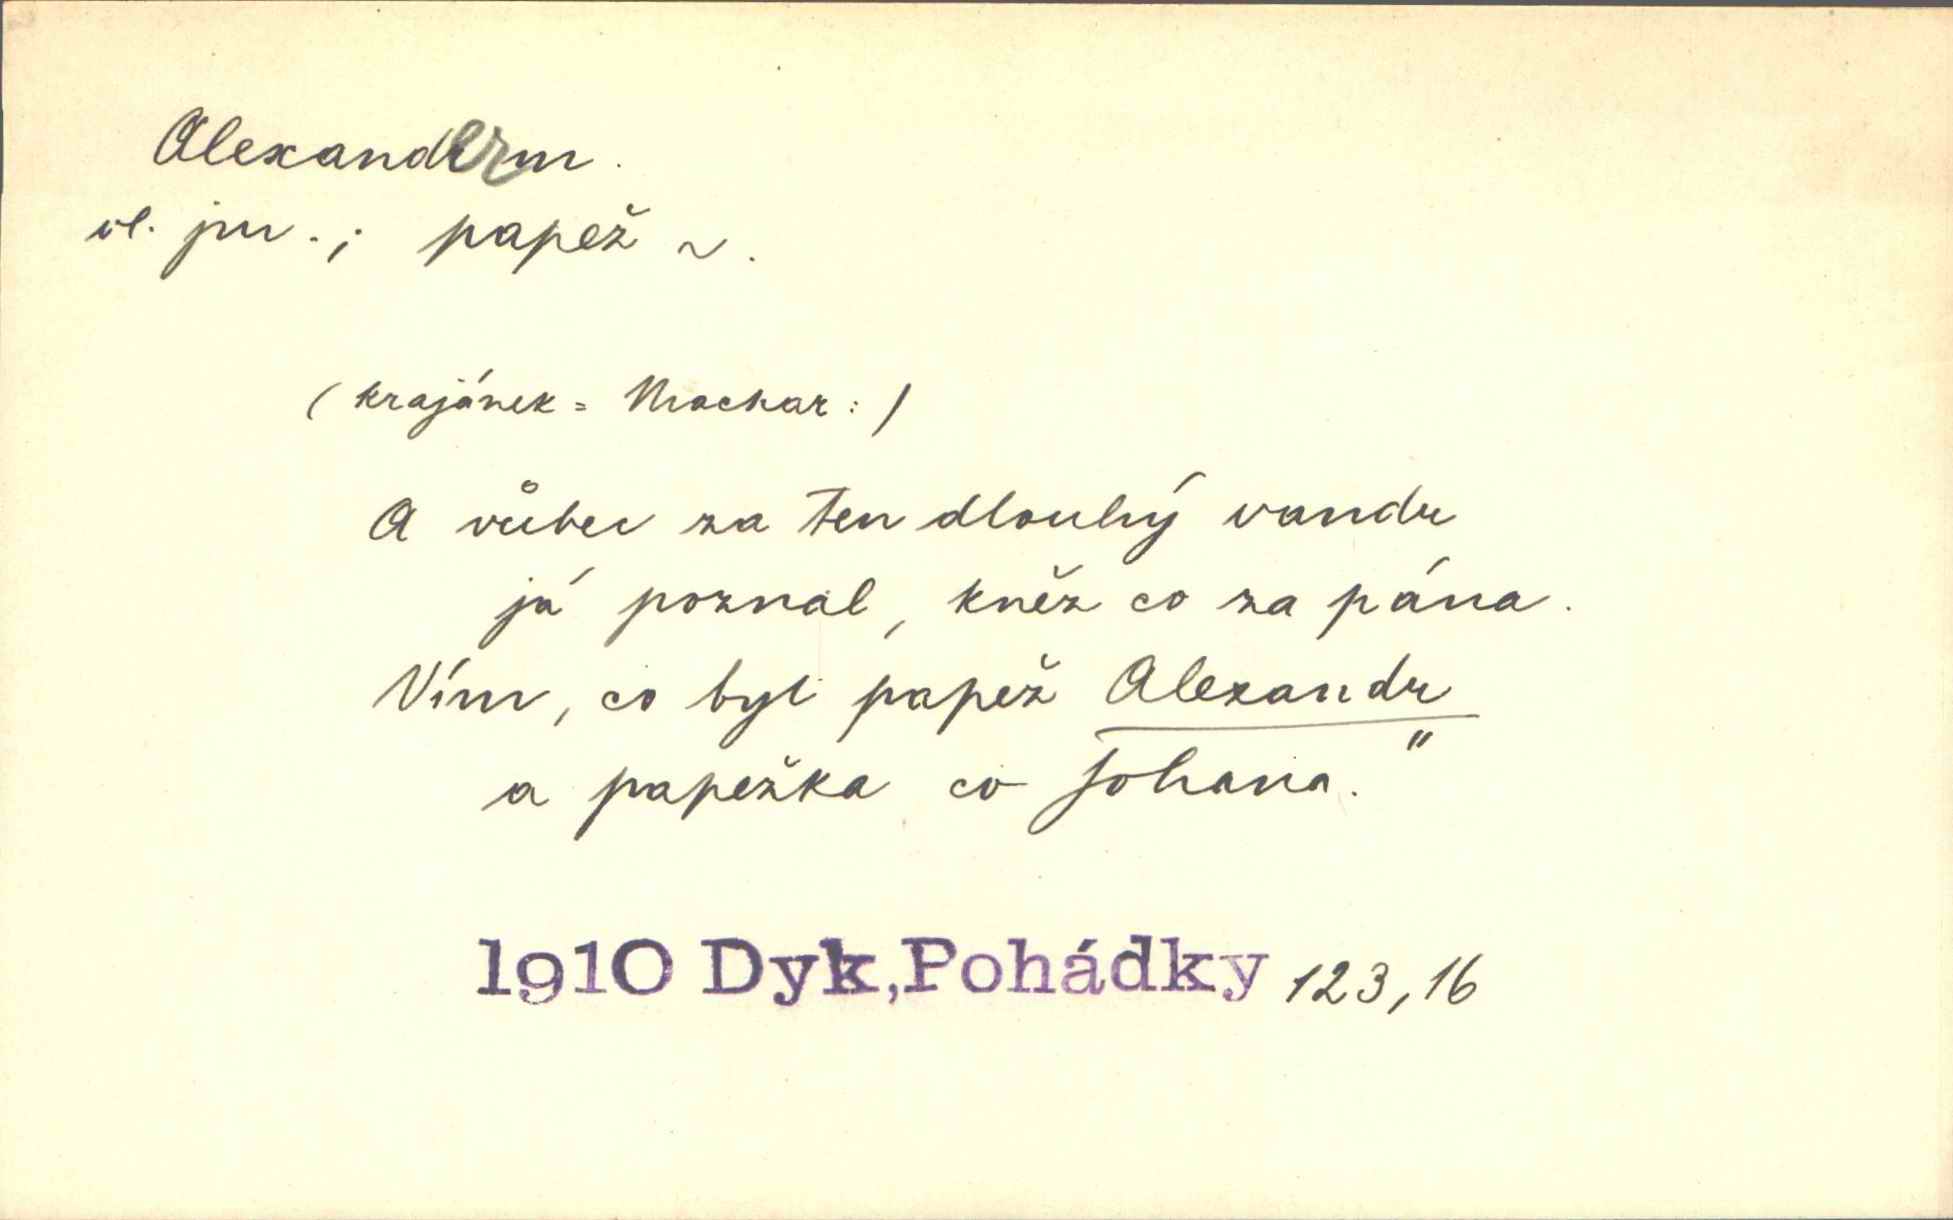 Alexander m.
vl. jm.; papež ~.
(krajánek = Machar:)
A vůbec za ten dlouhý vandr
já poznal, kněz co za pána.
Vím, co byl papež Alexandr
a papežka co Johana."
1910 Dyk, Pohádky 123, 16